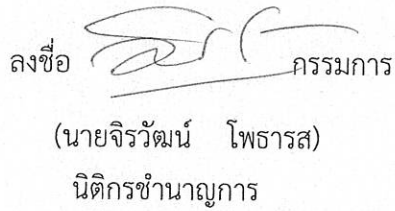 ลงชื่อ กรรมการ
(นายจิรวัฒน์ โพธารส)
นิติกรชำนาญการ